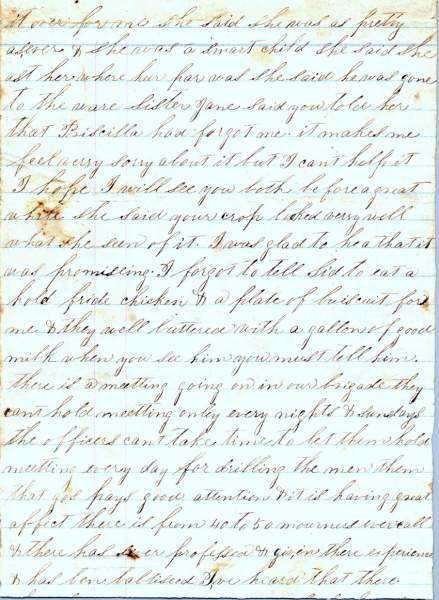 it over for me she said she was as pretty
as ever & she was a smart child she said she
ast her where hur par was she said he was gone
to the ware Sister Jane said you told her
that Priscilla had forgot me. it makes me
feel verry sorry about it but I cant help it
I hope I will see you both before a great
while she said your crop looked verry well
what she seen of it. I was glad to hea that it
was promising. I forgot to tell Sid to eat a
hold fride chicken & a plate of buiscuit for
me & they well butterede with a gallon of good
milk when you see him you must tell him.
there is a meetting going on in our brigade they
cant hold meetting onley every nights & sundays
the officers cant take time to let them hold
meetting every day for drilling the men them
that gos pays good attention & it is having great
affect there is from 40 to 50 mourners every call
& there has sever profess & given there experience
& has ben babtised I've heard that there